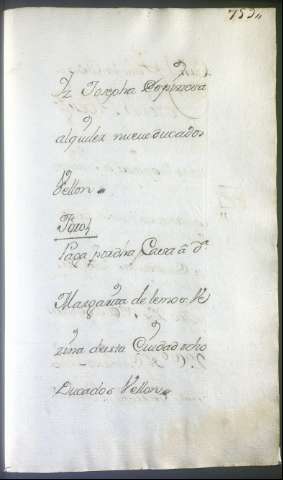 753,,
Dª Josepha Espinosa
alquiler nueve ducados
Vellon
Foros
Paga por dha Casa â Dª
Margarita de lemos Ve
zina desta Ciudad ocho
Ducados Vellon